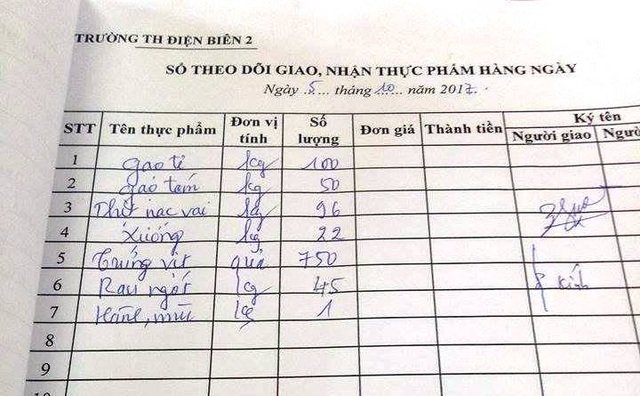 TRƯỜNG TH ĐIỆN BIÊN 2
SỔ THEO DÕI GIAO, NHẬN THỰC PHẨM HÀNG NGÀY
Ngày 5 tháng 10 năm 2017.
STT Tên thực phẩm Đơn vị tính Số lượng Đơn giá Thành tiền Ký tên
Người giao Ngườ
1 gạo tẻ kg 100
2 gạo tám kg 50
3 Thịt nạc vai kg 96
4 Xương kg 22
5 Trứng vịt quả 750
6 Rau ngót kg 45 Kính
7 Hành, mùi kg 1
8
9
10